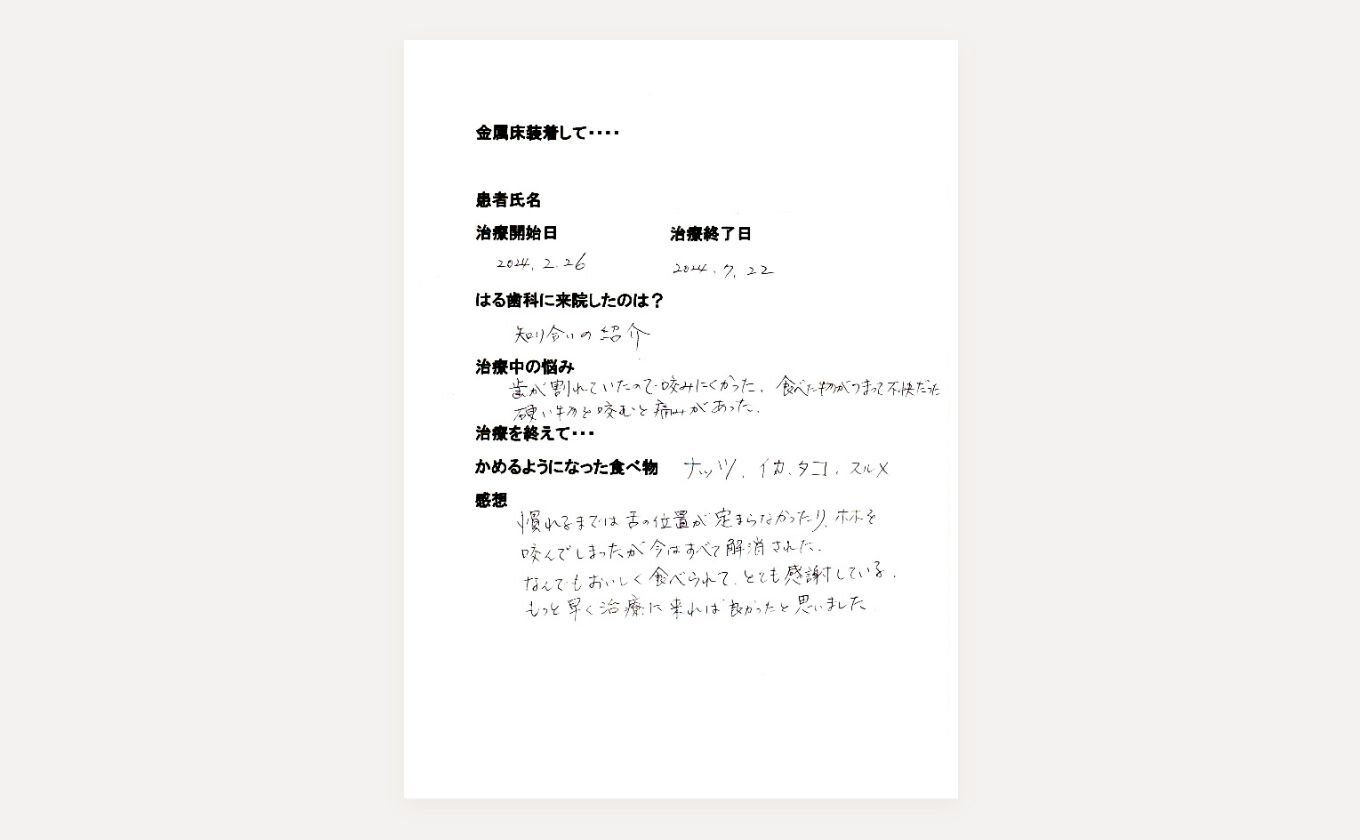 金属床装着して・・・・
患者氏名
治療開始日 治療終了日
2024. 2. 26 2024. 7. 22
はる歯科に来院したのは？
知り合いの紹介
治療中の悩み
歯が割れていたので咬みにくかった。食べた物がつまって不快だった
硬い物を咬むと痛みがあった。
治療を終えて・・・
かめるようになった食べ物 ナッツ、イカ、タコ、スルメ
感想
慣れるまでは舌の位置が定まらなかったり、ホホを
咬んでしまったが今はすべて解消された。
なんでもおいしく食べられて、とても感謝している。
もっと早く治療に来れば良かったと思いました